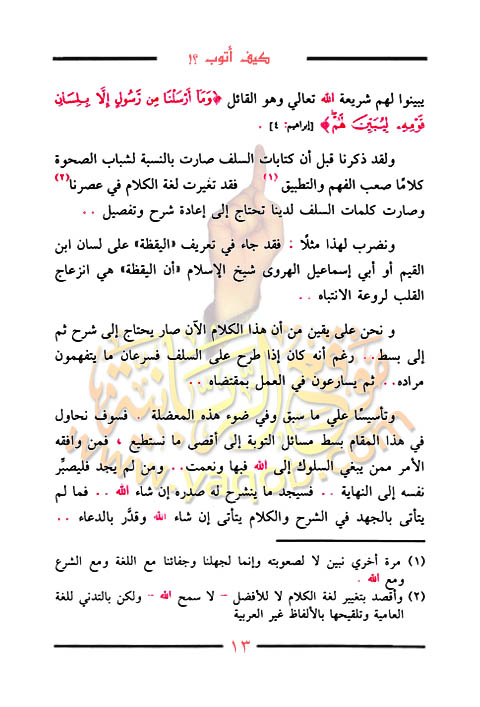 كيف أتوب ؟!
يبينوا لهم شريعة الله تعالي وهو القائل ﴿وَمَا أَرْسَلْنَا مِن رَّسُولٍ إِلَّا بِلِسَانِ
قَوْمِهِ لِيُبَيِّنَ لَهُمْ﴾ [إبراهيم: ٤] .
ولقد ذكرنا قبل أن كتابات السلف صارت بالنسبة لشباب الصحوة
كلامًا صعب الفهم والتطبيق (١) فقد تغيرت لغة الكلام في عصرنا(٢)
وصارت كلمات السلف لدينا تحتاج إلى إعادة شرح وتفصيل . .
ونضرب لهذا مثلًا : فقد جاء في تعريف «اليقظة» على لسان ابن
القيم أو أبي إسماعيل الهروى شيخ الإسلام «أن اليقظة» هي انزعاج
القلب لروعة الانتباه . .
و نحن على يقين من أن هذا الكلام الآن صار يحتاج إلى شرح ثم
إلى بسط. . رغم أنه كان إذا طرح على السلف فسرعان ما يتفهمون
مراده. . ثم يسارعون في العمل بمقتضاه . .
وتأسيسًا علي ما سبق وفي ضوء هذه المعضلة . فسوف نحاول
في هذا المقام بسط مسائل التوبة إلى أقصى ما نستطيع ، فمن وافقه
الأمر ممن يبغي السلوك إلى الله فبها ونعمت. . ومن لم يجد فليصبِّر
نفسه إلى النهاية . . فسيجد ما ينشرح له صدره إن شاء الله . . فما لم
يتأتى بالجهد في الشرح والكلام يتأتى إن شاء الله وقدَّر بالدعاء . .
(١) مرة أخري نبين لا لصعوبته وإنما لجهلنا وجفائنا مع اللغة ومع الشرع
ومع الله .
(٢) وأقصد بتغيير لغة الكلام لا للأفضل - لا سمح الله - ولكن بالتدني للغة
العامية وتلقيحها بالألفاظ غير العربية
١٣